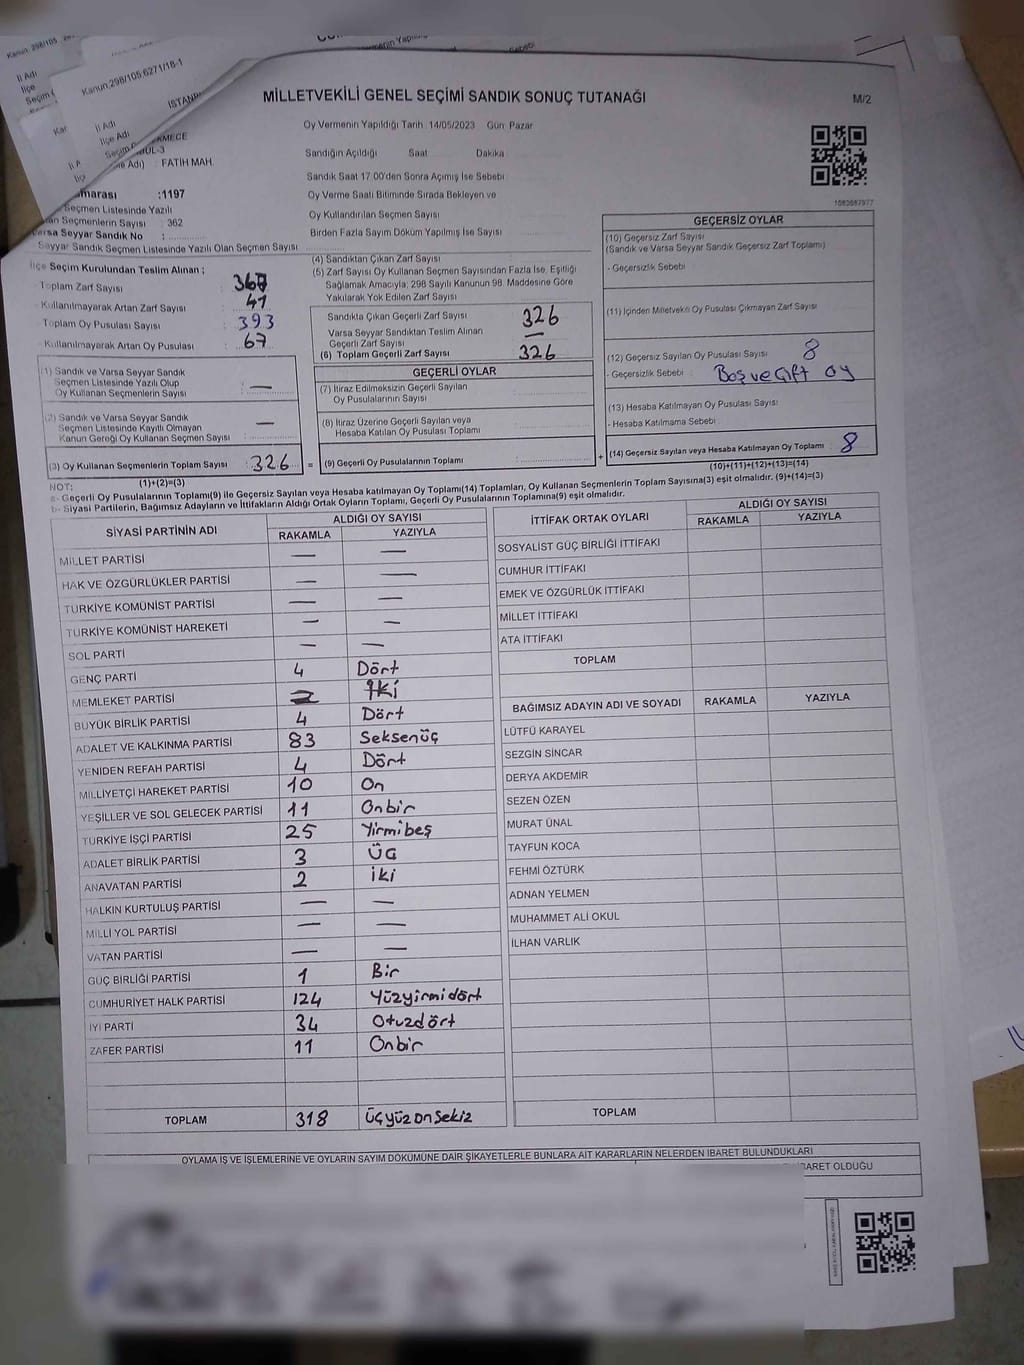 Kanun:298/105:6271/18-1
İl Adı
İlçe Adı
MİLLETVEKİLİ GENEL SEÇİMİ SANDIK SONUÇ TUTANAĞI
M/2
Oy Vermenin Yapıldığı Tarih 14/05/2023 Gün Pazar
Sandığın Açıldığı Saat Dakika
FATİH MAH.
Sandık Saat 17.00'den Sonra Açımış İse Sebebi
:1197
Oy Verme Saati Bitiminde Sırada Bekleyen ve
Oy Kullandırılan Seçmen Sayısı
Seçmen Listesinde Yazılı
Seçmenlerin Sayısı : 362
Birden Fazla Sayım Döküm Yapılmış İse Sayısı
Seyyar Sandık No :
Seyyar Sandık Seçmen Listesinde Yazılı Olan Seçmen Sayısı
İlçe Seçim Kurulundan Teslim Alınan ;
- Toplam Zarf Sayısı : 367
- Kullanılmayarak Artan Zarf Sayısı : 41
- Toplam Oy Pusulası Sayısı : 393
- Kullanılmayarak Artan Oy Pusulası : 67
(1) Sandık ve Varsa Seyyar Sandık
Seçmen Listesinde Yazılı Olup
Oy Kullanan Seçmenlerin Sayısı : —
(2) Sandık ve Varsa Seyyar Sandık
Seçmen Listesinde Kayıtlı Olmayan
Kanun Gereği Oy Kullanan Seçmen Sayısı : —
(3) Oy Kullanan Seçmenlerin Toplam Sayısı : 326 =
(1)+(2)=(3)
(4) Sandıktan Çıkan Zarf Sayısı
(5) Zarf Sayısı Oy Kullanan Seçmen Sayısından Fazla İse, Eşitliği
Sağlamak Amacıyla, 298 Sayılı Kanunun 98. Maddesine Göre
Yakılarak Yok Edilen Zarf Sayısı
Sandıkta Çıkan Geçerli Zarf Sayısı 326
Varsa Seyyar Sandıktan Teslim Alınan
Geçerli Zarf Sayısı —
(6) Toplam Geçerli Zarf Sayısı 326
GEÇERLİ OYLAR
(7) İtiraz Edilmeksizin Geçerli Sayılan
Oy Pusulalarının Sayısı
(8) İtiraz Üzerine Geçerli Sayılan veya
Hesaba Katılan Oy Pusulası Toplamı
(9) Geçerli Oy Pusulalarının Toplamı +
1083687977
GEÇERSİZ OYLAR
(10) Geçersiz Zarf Sayısı
(Sandık ve Varsa Seyyar Sandık Geçersiz Zarf Toplamı)
- Geçersizlik Sebebi
(11) İçinden Milletvekili Oy Pusulası Çıkmayan Zarf Sayısı
(12) Geçersiz Sayılan Oy Pusulası Sayısı 8
- Geçersizlik Sebebi : Boş ve Çift oy
(13) Hesaba Katılmayan Oy Pusulası Sayısı
- Hesaba Katılmama Sebebi
(14) Geçersiz Sayılan veya Hesaba Katılmayan Oy Toplamı 8
(10)+(11)+(12)+(13)=(14)
NOT:
a- Geçerli Oy Pusulalarının Toplamı(9) ile Geçersiz Sayılan veya Hesaba katılmayan Oy Toplamı(14) Toplamları, Oy Kullanan Seçmenlerin Toplam Sayısına(3) eşit olmalıdır. (9)+(14)=(3)
b- Siyasi Partilerin, Bağımsız Adayların ve İttifakların Aldığı Ortak Oyların Toplamı, Geçerli Oy Pusulalarının Toplamına(9) eşit olmalıdır.
SİYASİ PARTİNİN ADI ALDIĞI OY SAYISI
RAKAMLA YAZIYLA
MİLLET PARTİSİ — —
HAK VE ÖZGÜRLÜKLER PARTİSİ — —
TÜRKİYE KOMÜNİST PARTİSİ — —
TÜRKİYE KOMÜNİST HAREKETİ — —
SOL PARTİ — —
GENÇ PARTİ 4 Dört
MEMLEKET PARTİSİ 2 İki
BÜYÜK BİRLİK PARTİSİ 4 Dört
ADALET VE KALKINMA PARTİSİ 83 Seksenüç
YENİDEN REFAH PARTİSİ 4 Dört
MİLLİYETÇİ HAREKET PARTİSİ 10 On
YEŞİLLER VE SOL GELECEK PARTİSİ 11 Onbir
TÜRKİYE İŞÇİ PARTİSİ 25 Yirmibeş
ADALET BİRLİK PARTİSİ 3 Üç
ANAVATAN PARTİSİ 2 İki
HALKIN KURTULUŞ PARTİSİ — —
MİLLİ YOL PARTİSİ — —
VATAN PARTİSİ — —
GÜÇ BİRLİĞİ PARTİSİ 1 Bir
CUMHURİYET HALK PARTİSİ 124 Yüzyirmidört
İYİ PARTİ 34 Otuzdört
ZAFER PARTİSİ 11 Onbir
TOPLAM 318 Üçyüzonsekiz
İTTİFAK ORTAK OYLARI ALDIĞI OY SAYISI
RAKAMLA YAZIYLA
SOSYALİST GÜÇ BİRLİĞİ İTTİFAKI
CUMHUR İTTİFAKI
EMEK VE ÖZGÜRLÜK İTTİFAKI
MİLLET İTTİFAKI
ATA İTTİFAKI
TOPLAM
BAĞIMSIZ ADAYIN ADI VE SOYADI RAKAMLA YAZIYLA
LÜTFÜ KARAYEL
SEZGİN SİNCAR
DERYA AKDEMİR
SEZEN ÖZEN
MURAT ÜNAL
TAYFUN KOCA
FEHMİ ÖZTÜRK
ADNAN YELMEN
MUHAMMET ALİ OKUL
İLHAN VARLIK
TOPLAM
OYLAMA İŞ VE İŞLEMLERİNE VE OYLARIN SAYIM DÖKÜMÜNE DAİR ŞİKAYETLERLE BUNLARA AİT KARARLARIN NELERDEN İBARET BULUNDUKLARI
OLDUĞU